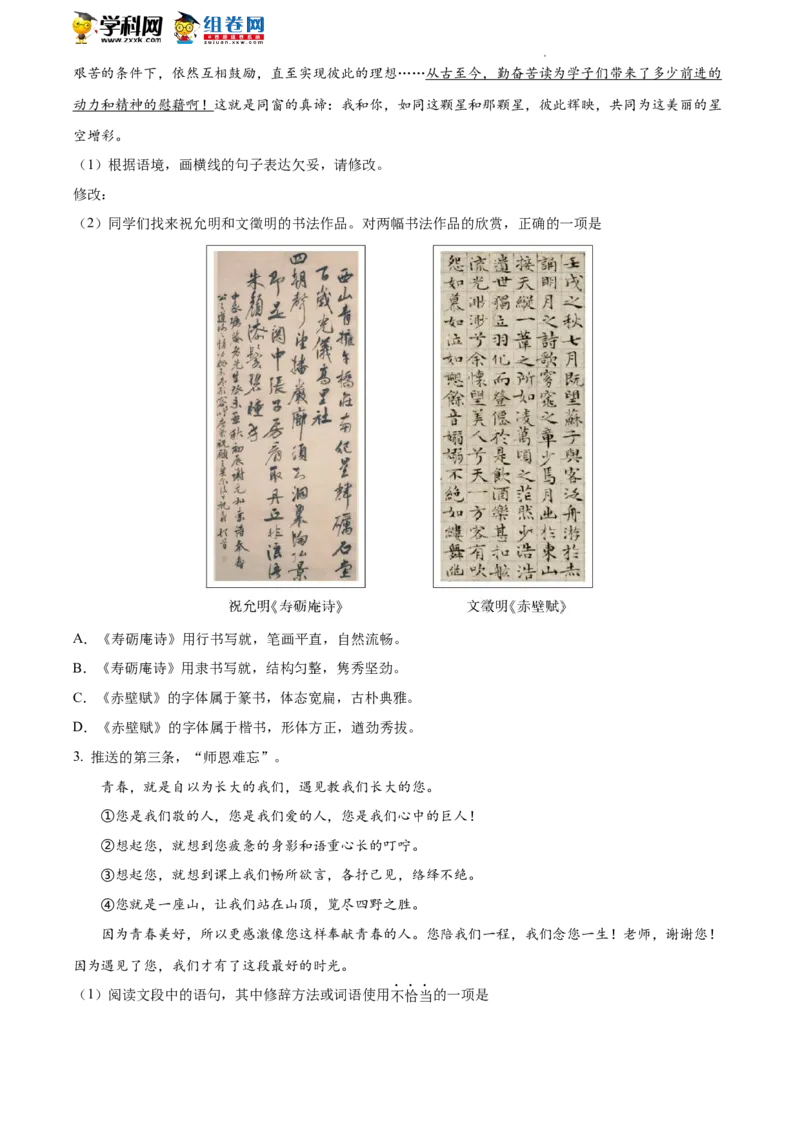 学科网 组卷网
www.zxxk.com zujuan.xkw.com
艰苦的条件下，依然互相鼓励，直至实现彼此的理想……从古至今，勤奋苦读为学子们带来了多少前进的
动力和精神的慰藉啊！这就是同窗的真谛：我和你，如同这颗星和那颗星，彼此辉映，共同为这美丽的星
空增彩。
（1）根据语境，画横线的句子表达欠妥，请修改。
修改：
（2）同学们找来祝允明和文徵明的书法作品。对两幅书法作品的欣赏，正确的一项是
壬戌之秋七月既望蘇子與客泛舟游於赤
誦明月之詩歌窈窕之章少焉月出於東山
接天縱一葦之所如凌萬頃之茫然少浩浩
遺世獨立羽化而登僊於是飲酒樂甚扣舷
流光渺渺兮余懷望美人兮天一方客有吹
怨如慕如泣如愬餘音嫋嫋不絶如縷舞
祝允明《寿砺庵诗》 文徵明《赤壁赋》
A．《寿砺庵诗》用行书写就，笔画平直，自然流畅。
B．《寿砺庵诗》用隶书写就，结构匀整，隽秀坚劲。
C．《赤壁赋》的字体属于篆书，体态宽扁，古朴典雅。
D．《赤壁赋》的字体属于楷书，形体方正，遒劲秀拔。
3. 推送的第三条，“师恩难忘”。
青春，就是自以为长大的我们，遇见教我们长大的您。
①您是我们敬的人，您是我们爱的人，您是我们心中的巨人！
②想起您，就想到您疲惫的身影和语重心长的叮咛。
③想起您，就想到课上我们畅所欲言，各抒己见，络绎不绝。
④您就是一座山，让我们站在山顶，览尽四野之胜。
因为青春美好，所以更感激像您这样奉献青春的人。您陪我们一程，我们念您一生！老师，谢谢您！
因为遇见了您，我们才有了这段最好的时光。
（1）阅读文段中的语句，其中修辞方法或词语使用不恰当的一项是